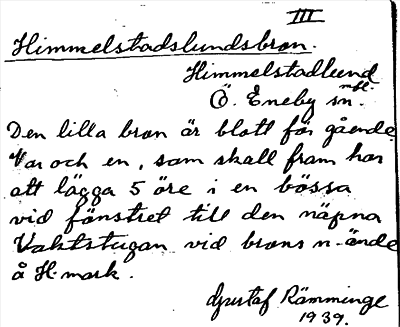 III
Himmelstadslundsbron.
Himmelstadlund
Ö. Eneby sn.
Den lilla bron är blott för gående.
Var och en, som skall fram har
att lägga 5 öre i en bössa
vid fönstret till den näpna
Vaktstugan vid brons n. ände
å H-mark.
Gustaf Rämminge
1939.